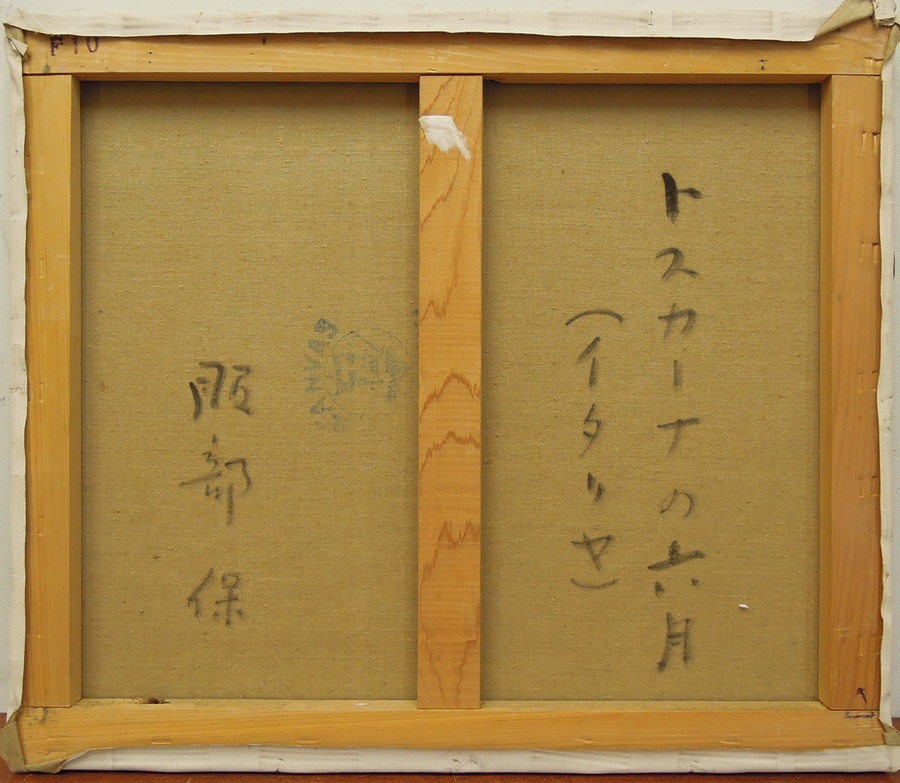 F10
トスカーナの六月
（イタリヤ）
服部 保